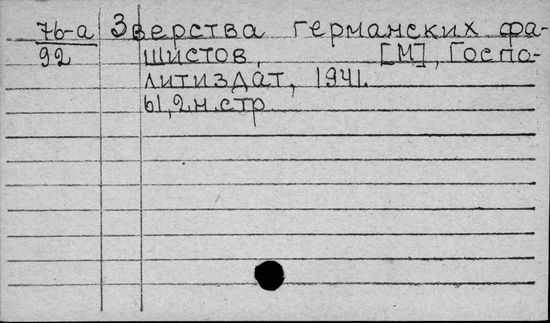 76-а Зверства германских фа-
92 шистов, [М], Госпо-
литиздат, 1941.
61, 2 н. стр